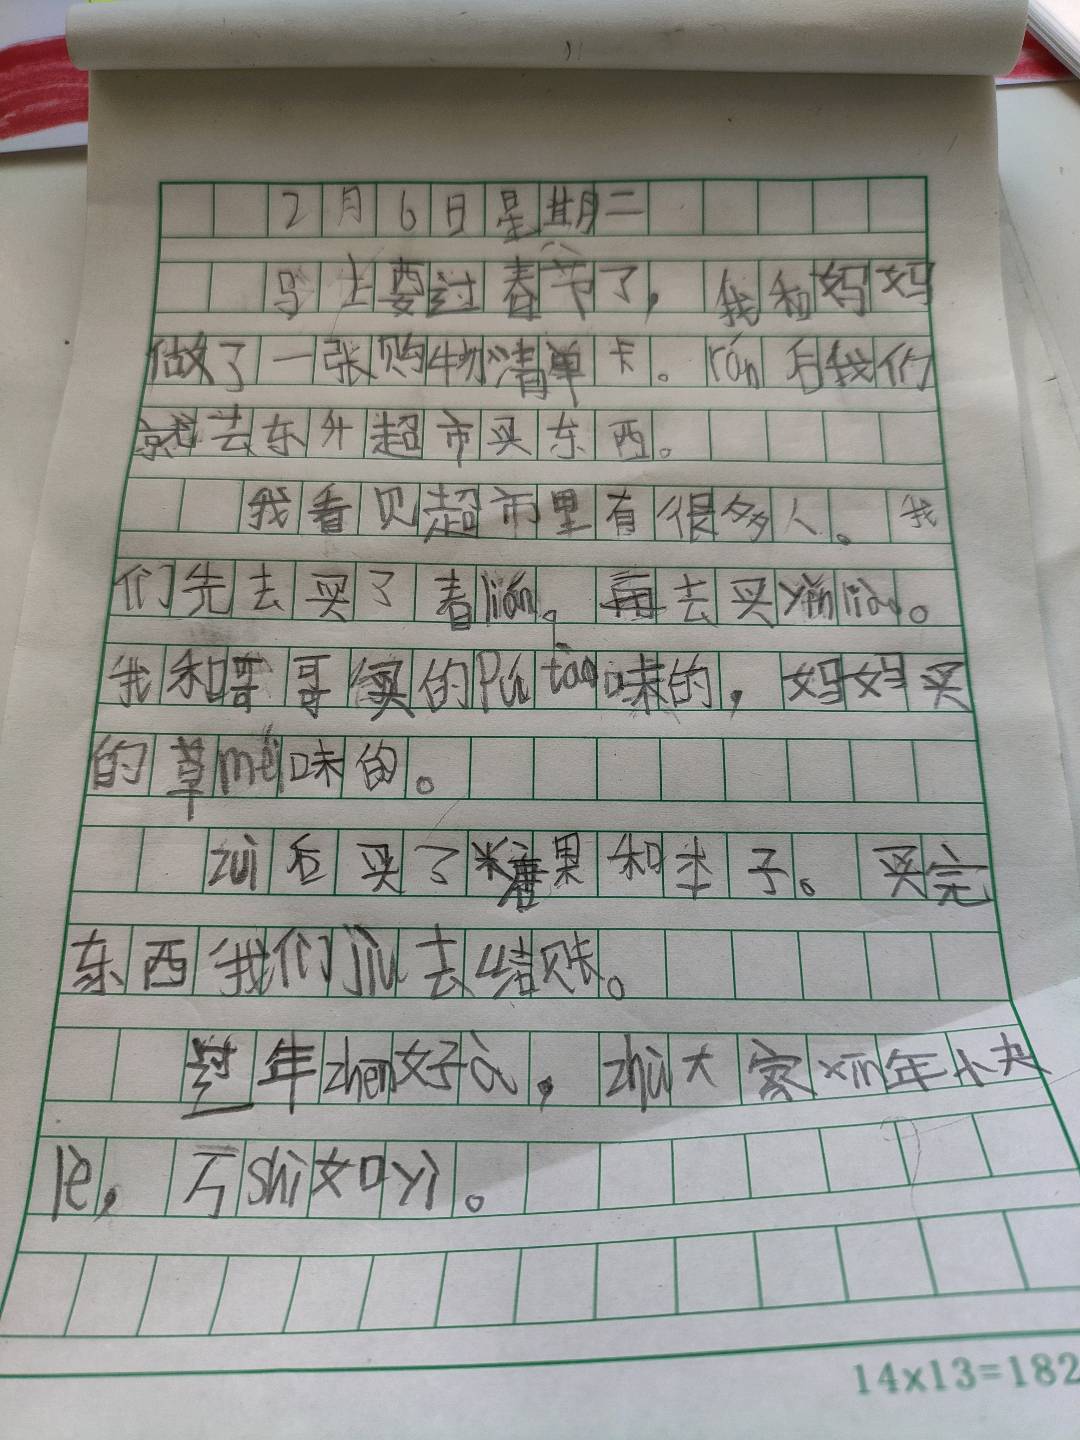 2月6日星期二
马上要过春节了，我和妈妈
做了一张购物清单卡。rán后我们
就去东升超市买东西。
我看见超市里有很多人。我
们先去买了春lián。再去买yǐnliào。
我和哥哥买的Pútao味的，妈妈买
的草méi味的。
zuì后买了糖果和本子。买完
东西我们jiù去结账。
过年zhen好à，zhù大家xīn年快
lè，万shì如yì。
14x13=182